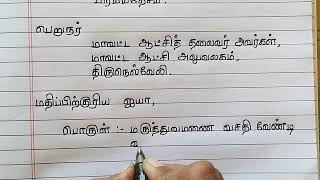 பெறுநர்
மாவட்ட ஆட்சித் தலைவர் அவர்கள்,
மாவட்ட ஆட்சி அலுவலகம்,
திருநெல்வேலி.
மதிப்பிற்குரிய ஐயா,
பொருள் :- மருத்துவமனை வசதி வேண்டி